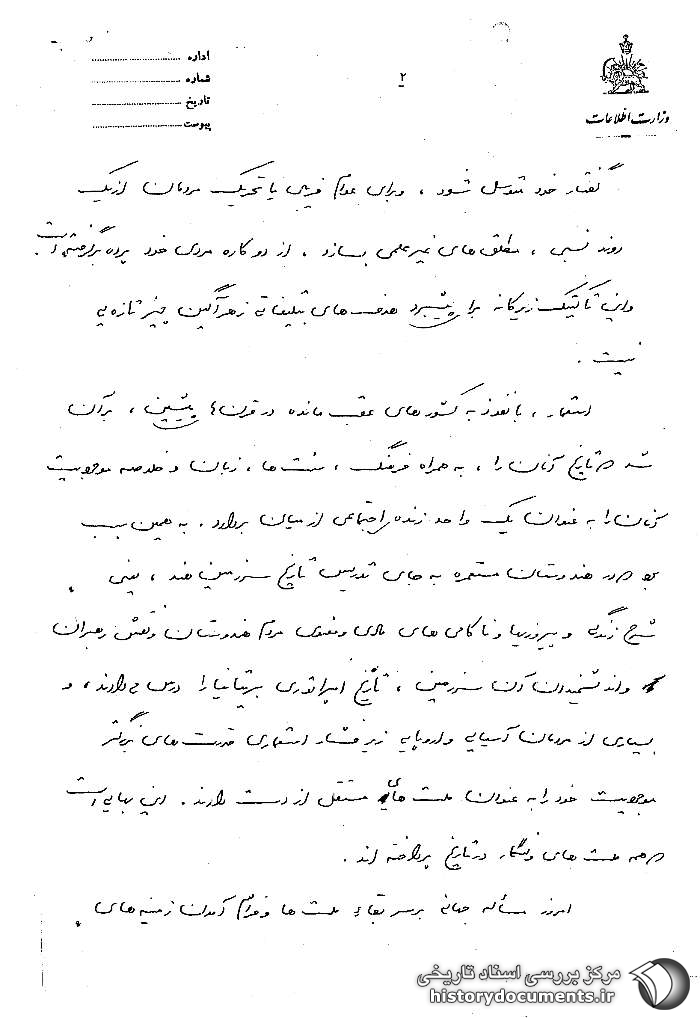 اداره ........................
شماره ........................
تاریخ ........................
پیوست ........................
۲
وزارت اطلاعات
گفتار خود متوسل شود ، و برای عوام فریبی یا تحریک مردمان از یک
روند نسبی ، مطلق های غیر علمی بسازد ، از دوکاره مردی خود پرده برگرفته است .
و این تاکتیک زیرکانه برای پیشبرد هدف های تبلیغاتی زهرآگین چیز تازه یی
نیست .
استعمار ، با نفوذ به کشورهای عقب مانده در قرن های پیشین ، بر آن
شد که تاریخ آنان را ، به همراه فرهنگ ، سنت ها ، زبان و خلاصه موجودیت
آنان را به عنوان یک واحد زنده اجتماعی از میان بردارد . به همین سبب
بود که در هندوستان مستعمره به جای تدریس تاریخ سرزمین هند ، یعنی
شرح زندگی و پیروزیها و ناکامی های مادی و معنوی مردم هندوستان و نقش رهبران
و اندیشمندان آن سرزمین ، تاریخ امپراتوری بریتانیا را درس می دادند ، و
بسیاری از مردمان آسیایی و اروپایی زیر فشار استعماری قدرت های بزرگتر
موجودیت خود را به عنوان ملت های مستقل از دست دادند . این بهایی است
که همه ملت های در تاریخ پرداخته اند .
امروز مسأله جهانی بر سر بقاء ملت ها و فراهم آمدن زمینه های
مرکز بررسی اسناد تاریخی
historydocuments.ir